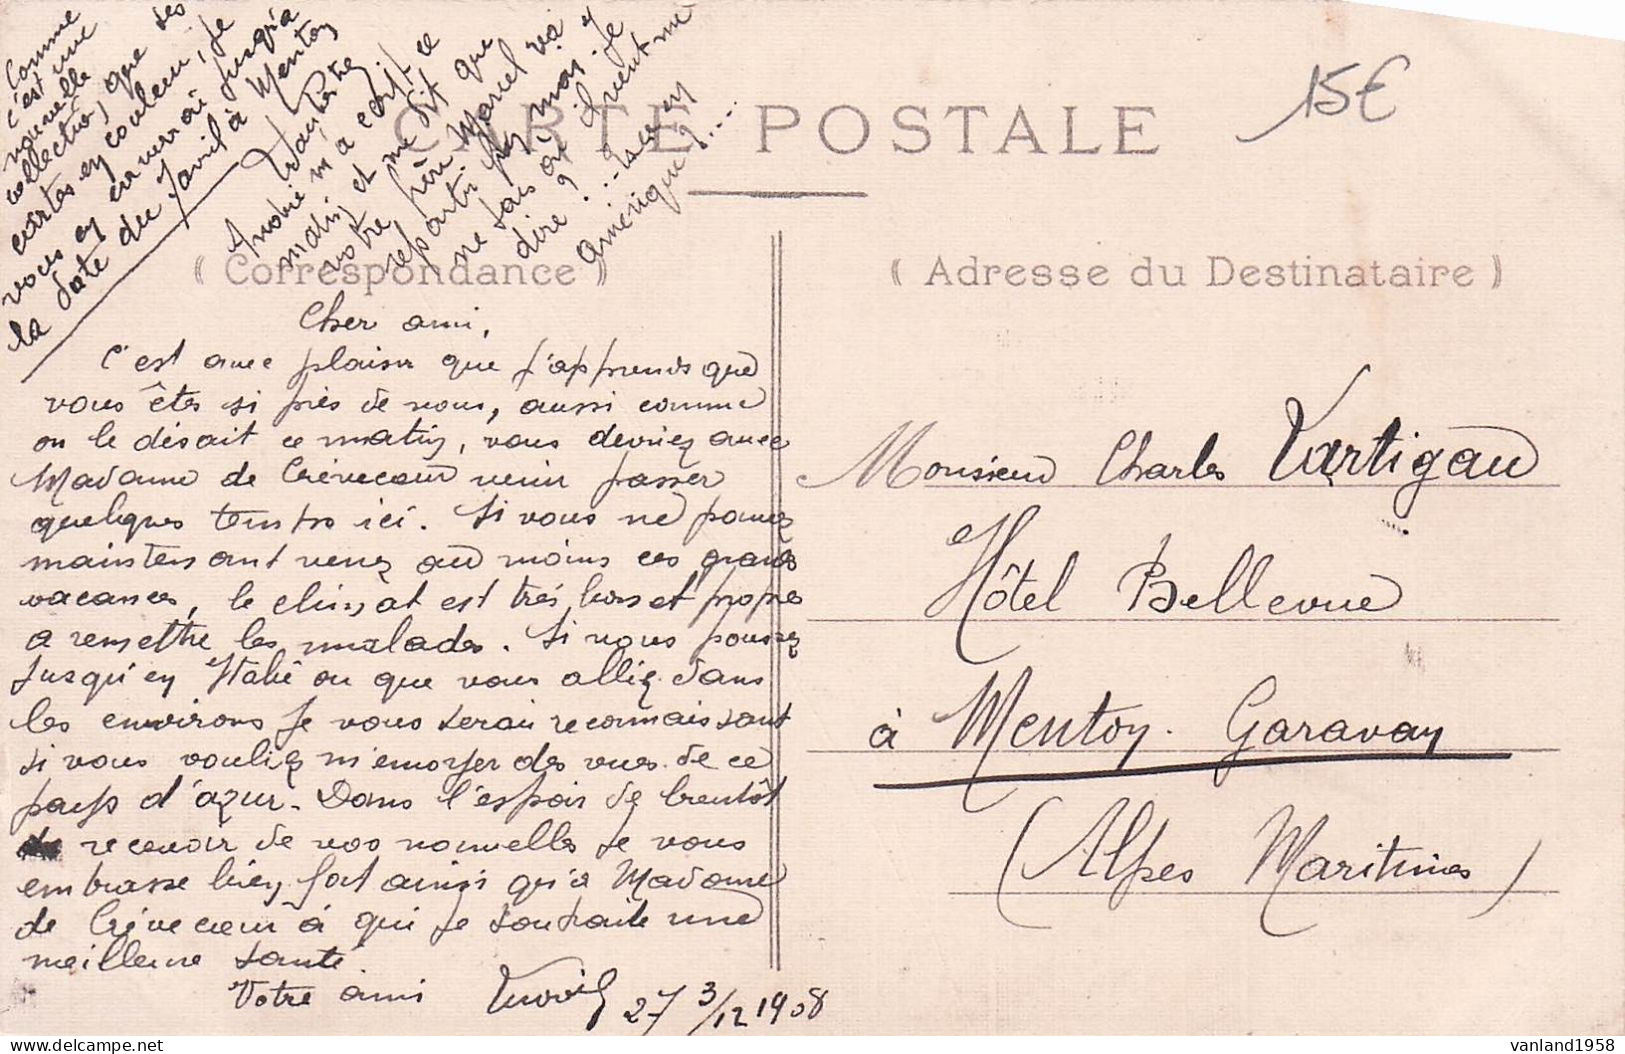 Comme
c'est une
nouvelle
collection, que des
cartes en couleur, je
vous en enverrai jusqu'à
la date du 1 avril à Menton
André m'a écrit ce
matin et me dit que
votre père Marcel va
repartir mais je
ne sais où il veut me
dire ? ... Est-ce en
Amérique ? ...
CARTE POSTALE
15€
( Correspondance )
( Adresse du Destinataire )
Cher ami,
C'est avec plaisir que j'apprends que
vous êtes si près de nous, aussi comme
on le disait ce matin, vous devriez avec
Madame de Crèvecoeur venir passer
quelques temps ici. Si vous ne pouvez
maintenant venez au moins ces grandes
vacances, le climat est très bon et propre
a remettre les malades. Si vous poussez
jusqu'en Italie ou que vous alliez dans
les environs je vous serai reconnaissant
si vous vouliez m'envoyer des vues de ce
pays d'azur. Dans l'espoir de bientôt
recevoir de vos nouvelles je vous
embrasse bien fort ainsi qu'à Madame
de Crèvecoeur à qui je souhaite une
meilleure santé
Votre ami
27 3/12 1908
Monsieur Charles Vartigau
Hôtel Bellevue
à Menton. Garavan
(Alpes Maritimes)
vanland1958